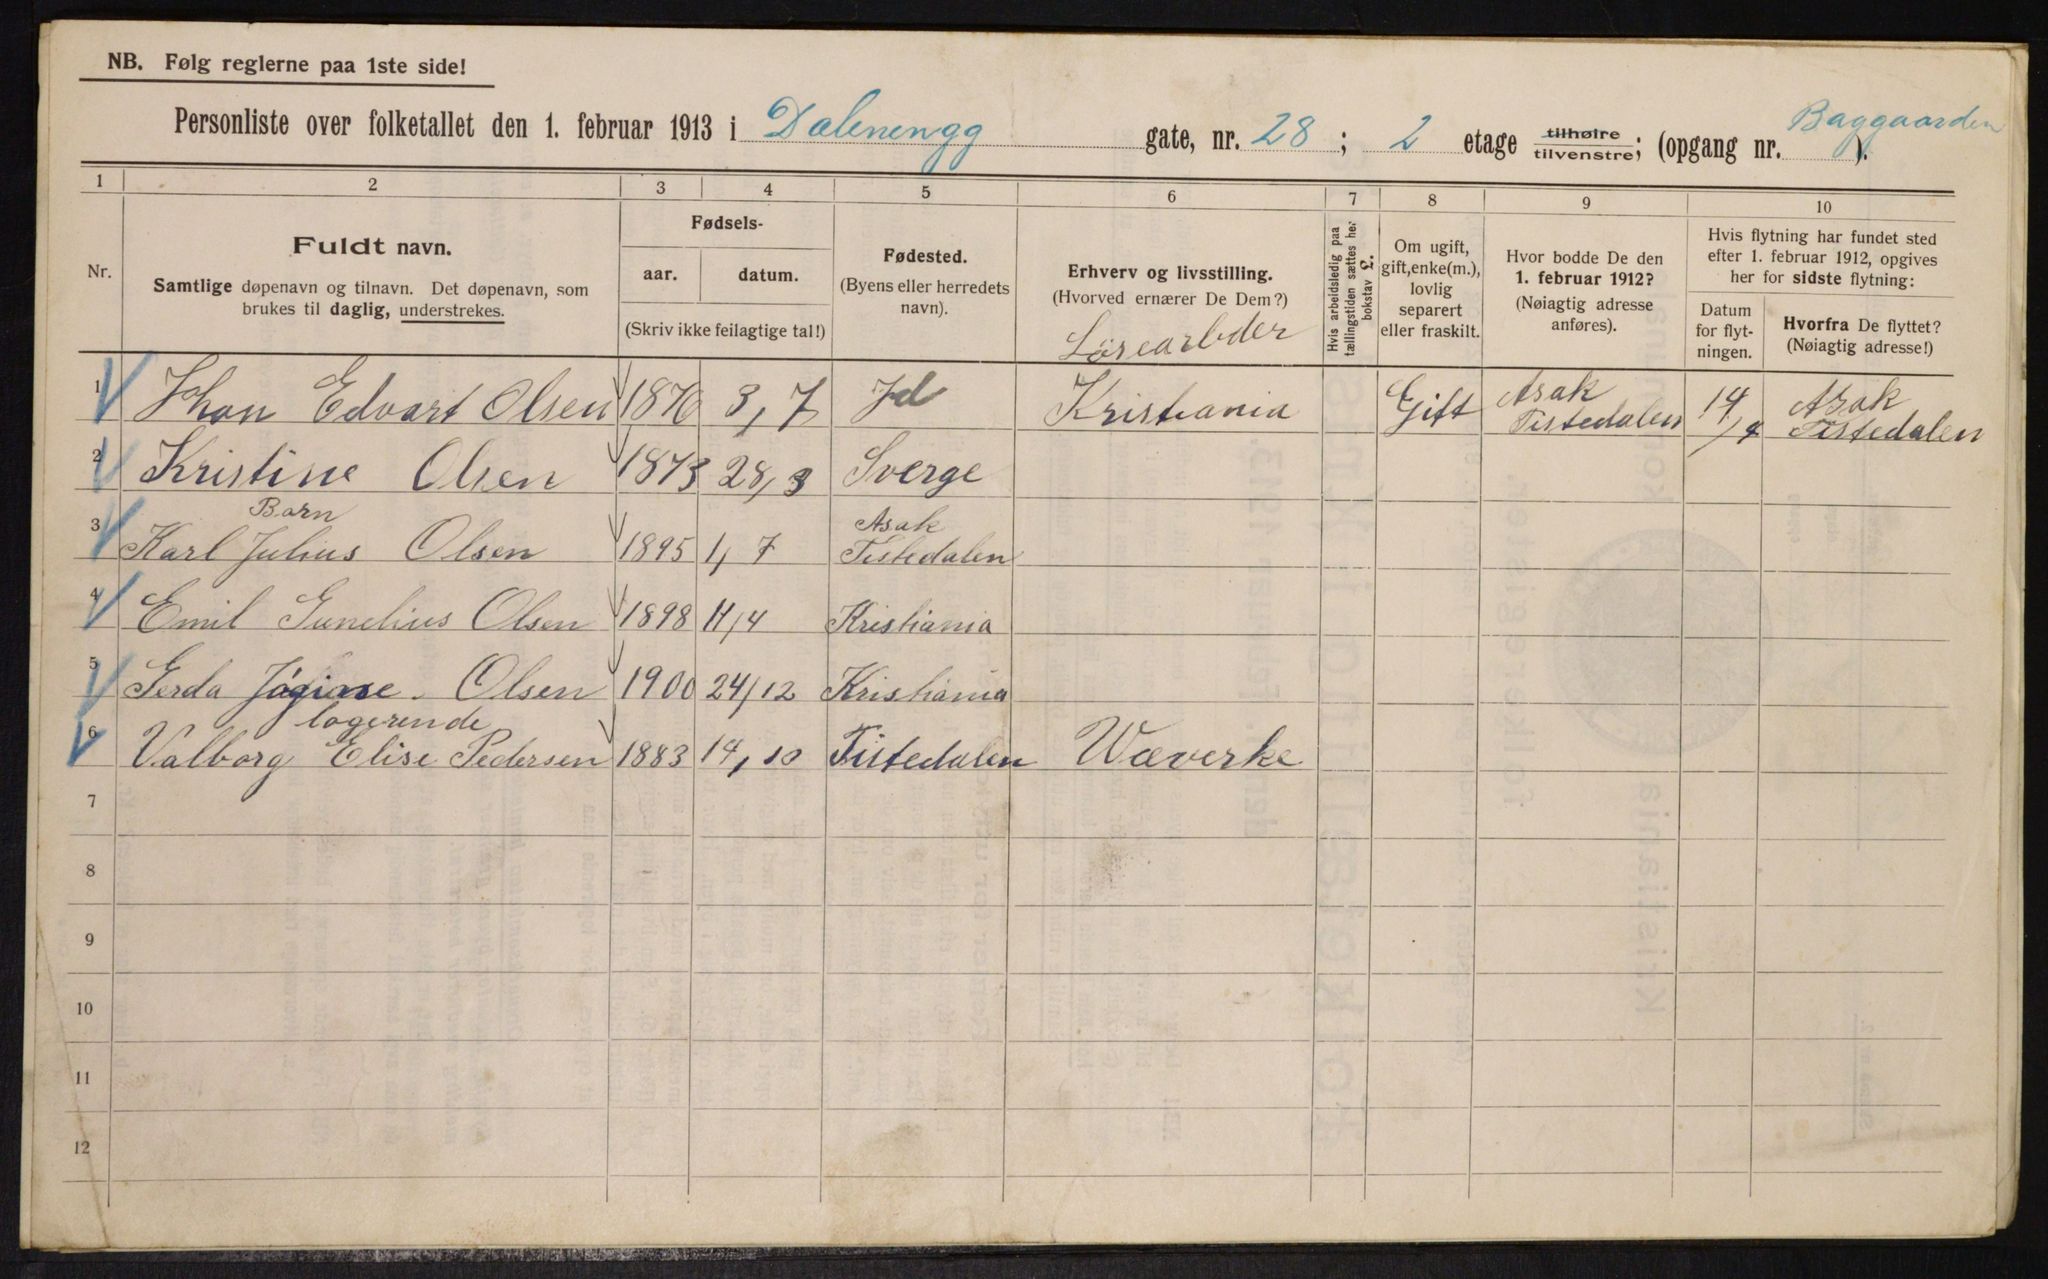 NB. Følg reglerne paa 1ste side!
Personliste over folketallet den 1. februar 1913 i Dælenengg gate, nr. 28 ; 2 etage tilhøire tilvenstre; (opgang nr. Baggaarden ).
1 2 3 4 5 6 7 8 9 10
Nr.
Fuldt navn.
Samtlige døpenavn og tilnavn. Det døpenavn, som
brukes til daglig, understrekes.
Fødsels-
aar. datum.
(Skriv ikke feilagtige tal!)
Fødested.
(Byens eller herredets
navn).
Erhverv og livsstilling.
(Hvorved ernærer De Dem?)
Hvis arbeidsledig paa
tællingstiden sættes her
bokstav £.
Om ugift,
gift,enke(m.),
lovlig
separert
eller fraskilt.
Hvor bodde De den
1. februar 1912?
(Nøiagtig adresse
anføres).
Hvis flytning har fundet sted
efter 1. februar 1912, opgives
her for sidste flytning:
Datum
for flyt-
ningen.
Hvorfra De flyttet?
(Nøiagtig adresse!)
Lösearbder
1 Johan Edvart Olsen 1870 3, 7 Id Kristiania Gift Asak Tistedalen 14/4 Asak Tistedalen
2 Kristine Olsen 1873 28, 3 Sverge
Barn
3 Karl Julius Olsen 1895 1, 7 Asak Tistedalen
4 Emil Olsen 1898 11/4 Kristiania
5 Gerda Olsen 1900 24/12 Kristiania
logerende
6 Valborg Elise Pedersen 1883 14, 10 Tistedalen Wæverke
7
8
9
10
11
12